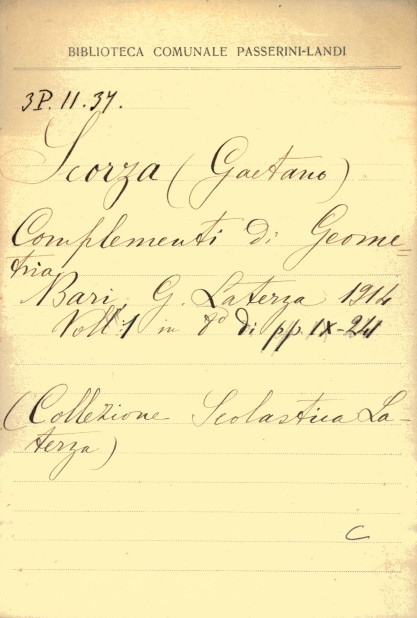 BIBLIOTECA COMUNALE PASSERINI-LANDI
3P.11.37.
Scorza (Gaetano)
Complementi di Geome=
tria
Bari, G. Laterza 1914
Voll. 1 in 8º di pp. IX-241
(Collezione Scolastica La-
terza)
C